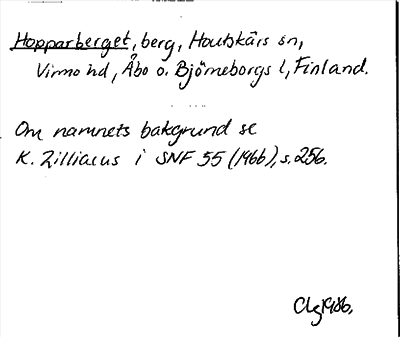 Hopparberget, berg, Houtskärs sn,
Virmo hd, Åbo o. Björneborgs l, Finland.
Om namnets bakgrund se
K. Zilliacus i SNF 55 (1966), s. 256.
1986.